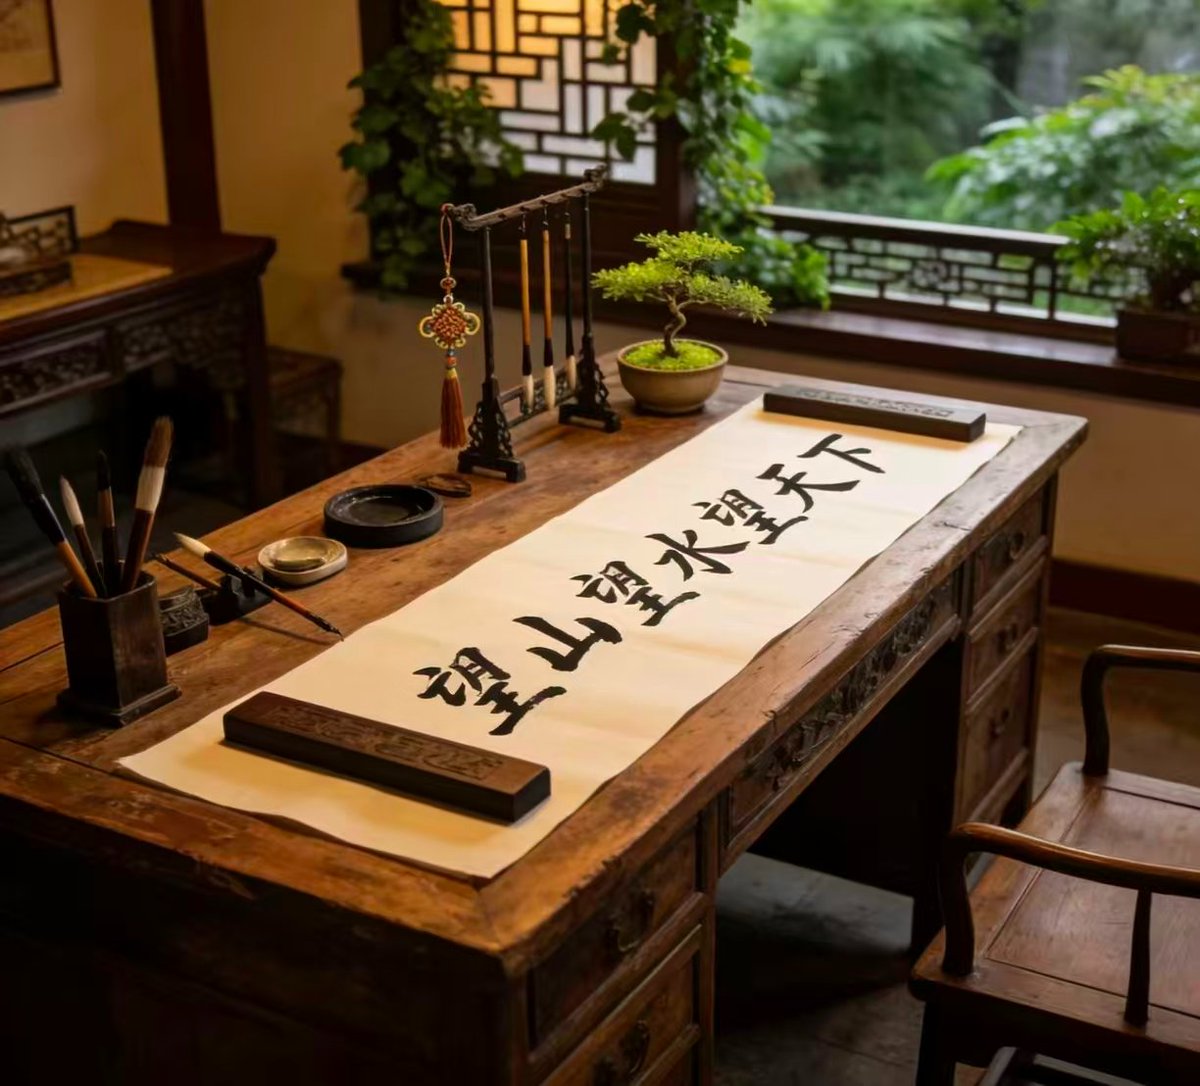 望山望水望天下